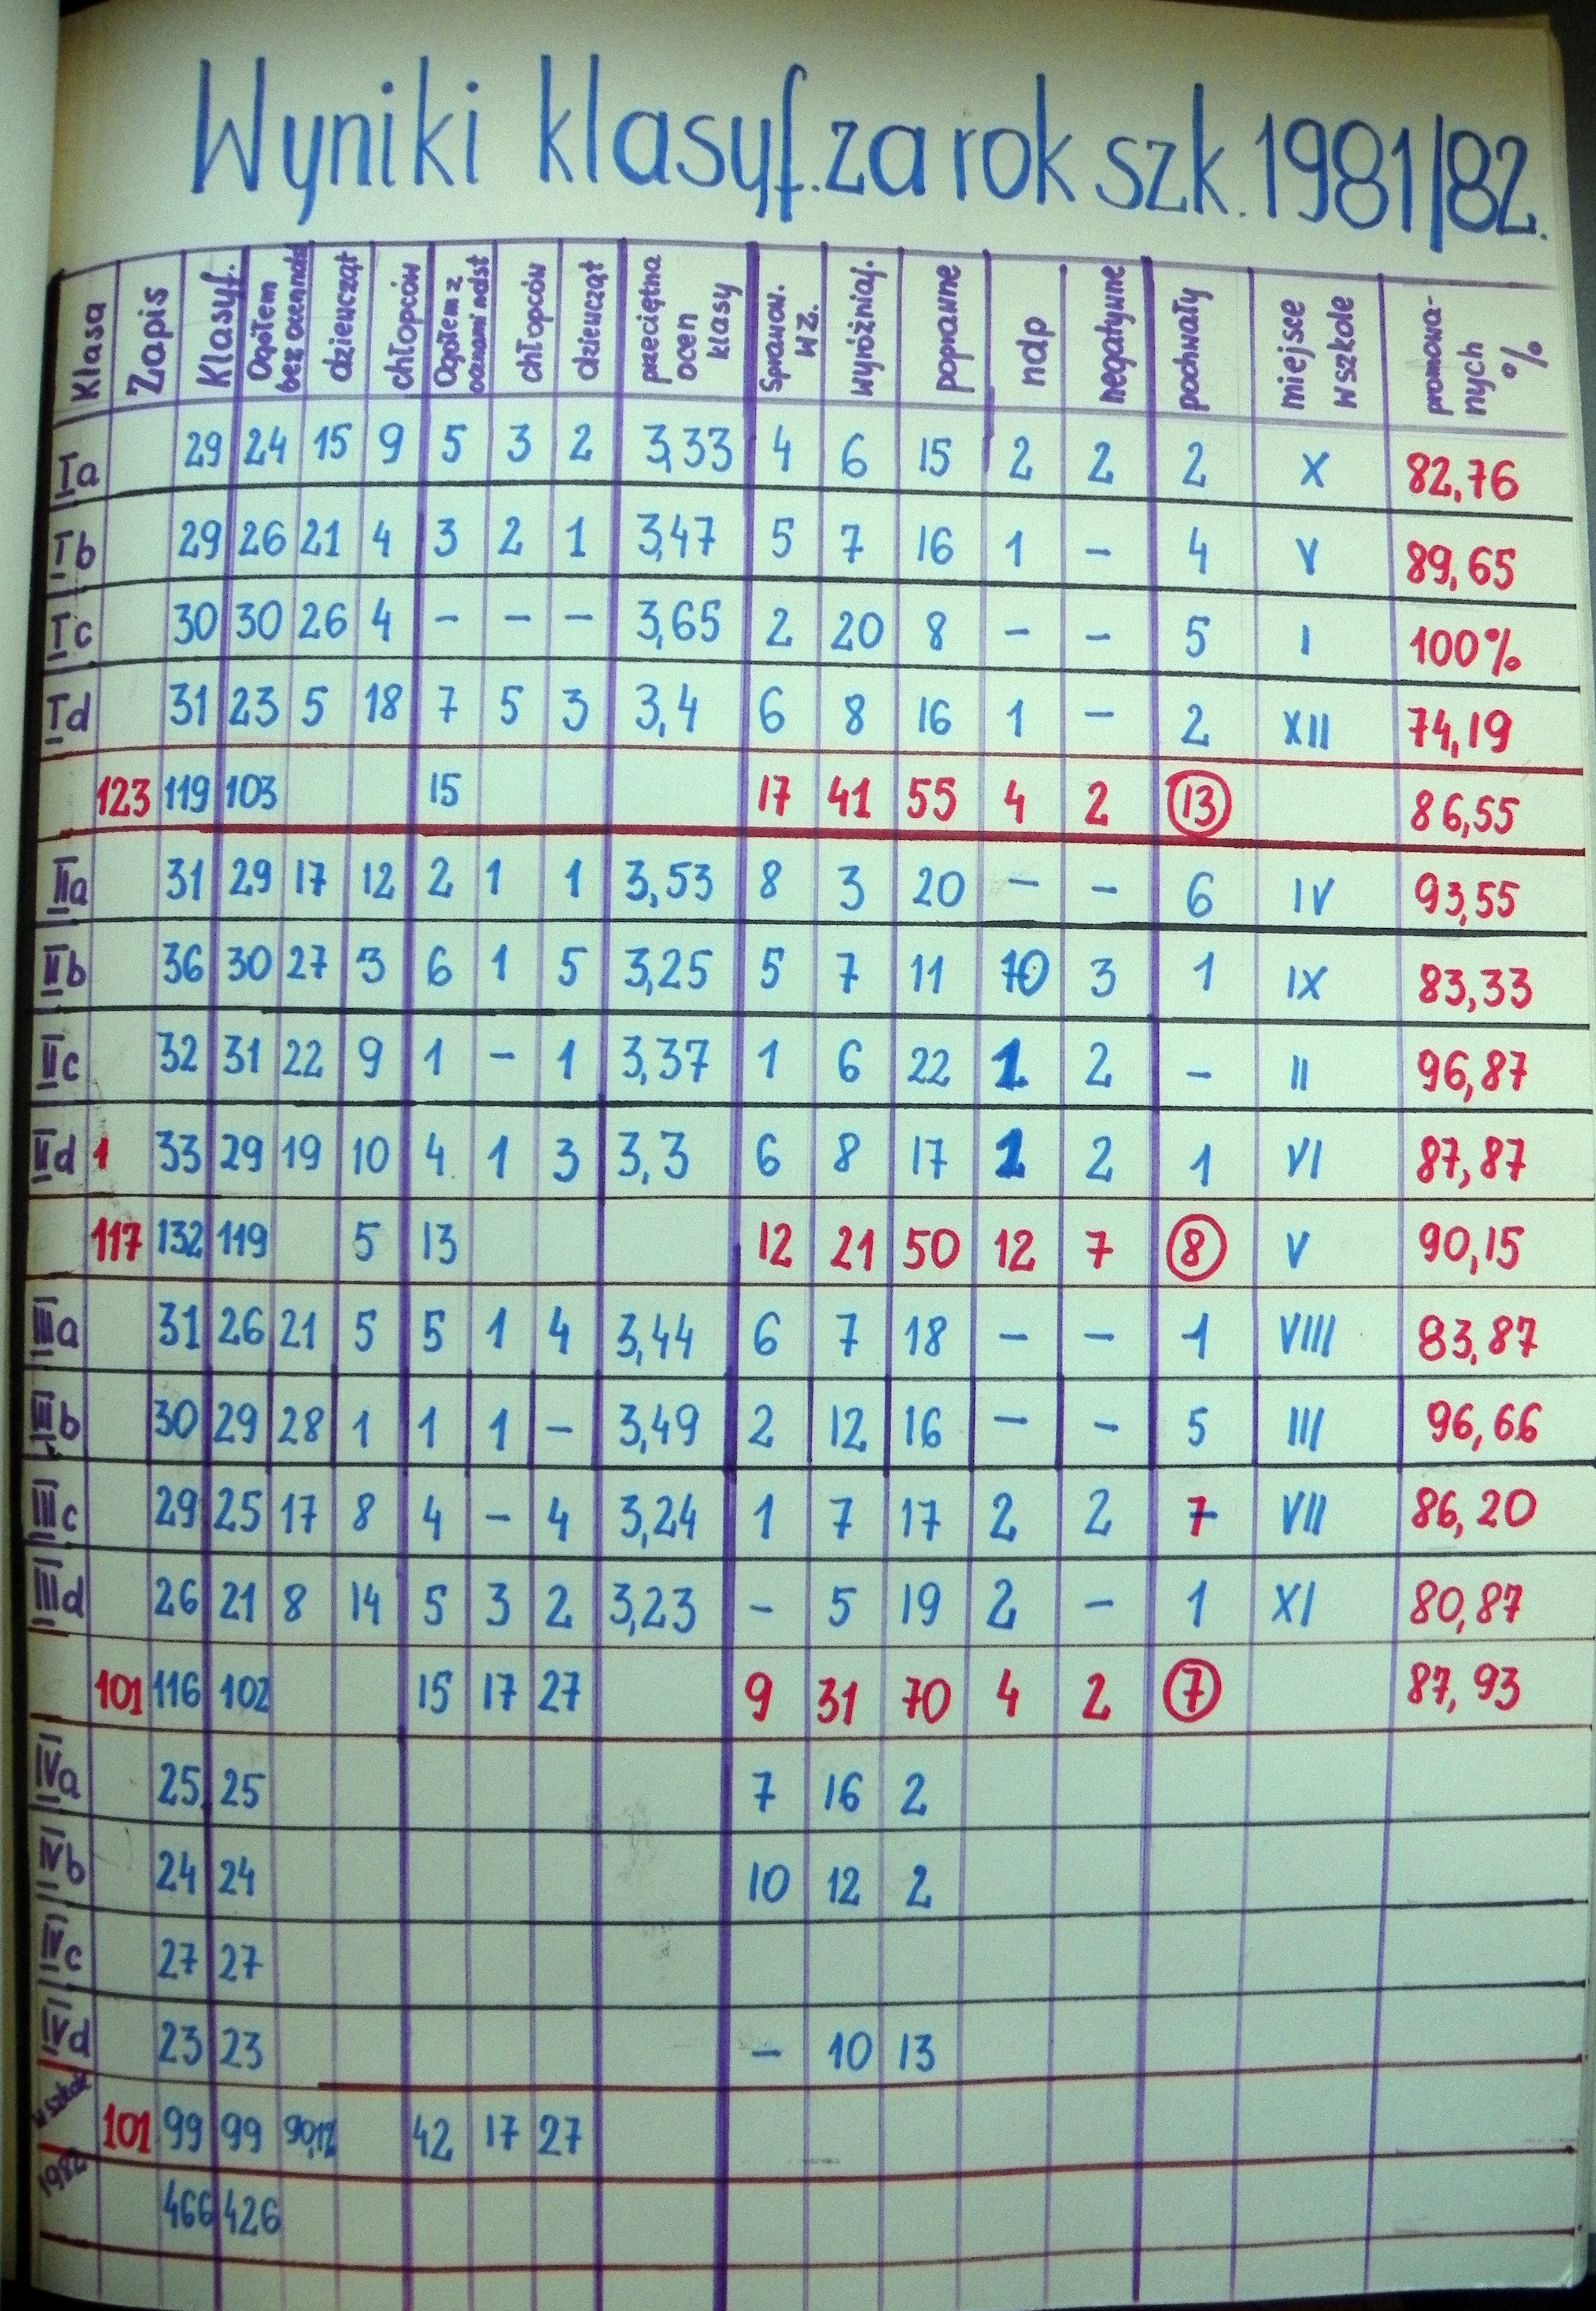 Wyniki klasyf. za rok szk. 1981/82.
Klasa Zapis Klasyf. Ogółem bez ocen ndst dziewcząt chłopców Ogółem z ocenami ndst chłopców dziewcząt przeciętna ocen klasy Sprawow. wz. wyróżniaj. poprawne ndp negatywne pochwały miejsce w szkole promowanych %
Ia 29 24 15 9 5 3 2 3,33 4 6 15 2 2 2 X 82,76
Ib 29 26 21 4 3 2 1 3,47 5 7 16 1 - 4 V 89,65
Ic 30 30 26 4 - - - 3,65 2 20 8 - - 5 I 100%
Id 31 23 5 18 7 5 3 3,4 6 8 16 1 - 2 XII 74,19
123 119 103 15 17 41 55 4 2 13 86,55
IIa 31 29 17 12 2 1 1 3,53 8 3 20 - - 6 IV 93,55
IIb 36 30 27 3 6 1 5 3,25 5 7 11 10 3 1 IX 83,33
IIc 32 31 22 9 1 - 1 3,37 1 6 22 1 2 - II 96,87
IId 1 33 29 19 10 4 1 3 3,3 6 8 17 1 2 1 VI 87,87
117 132 119 5 13 12 21 50 12 7 8 V 90,15
IIIa 31 26 21 5 5 1 4 3,44 6 7 18 - - 1 VIII 83,87
IIIb 30 29 28 1 1 1 - 3,49 2 12 16 - - 5 III 96,66
IIIc 29 25 17 8 4 - 4 3,24 1 7 17 2 2 7 VII 86,20
IIId 26 21 8 14 5 3 2 3,23 - 5 19 2 - 1 XI 80,87
101 116 102 15 17 27 9 31 70 4 2 7 87,93
IVa 25 25 7 16 2
IVb 24 24 10 12 2
IVc 27 27
IVd 23 23 - 10 13
101 99 99 90,12 42 17 27
1982 466 426